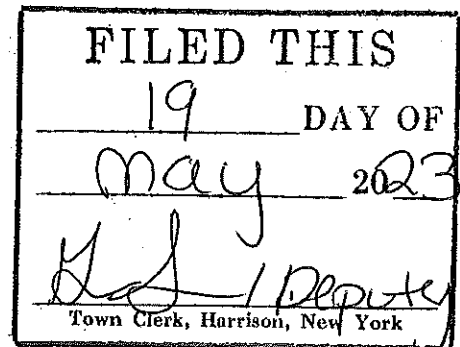 FILED THIS
19 DAY OF
May 2023
/ Deputy
Town Clerk, Harrison, New York